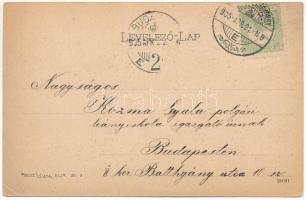 LEVELEZŐ-LAP
BUDA
2
Nagyságos
Kozma Gyula polgári
leányiskola igazgató úrnak
Budapesten
II ker Batthyány utca 11 sz